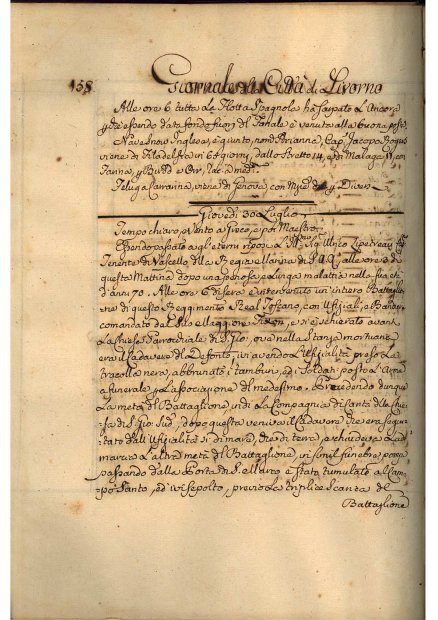 158 Giornale della Città di Livorno
Alle ore 6 tutta la Flotta Spagnola ha salpato l'Ancora
ed essendo data fondo fuori del Fanale è venuta alla buona
Nave Inglese, è giunto, nom. Arianna, Cap. Jacopo
viene di Filadelfia in 64 giorni, dallo Stretto 14, e di Malaga 11, con
Farina,
viene di Genova, con
Giovedì 30 Luglio
Tempo chiaro, vento a Greco, e poi Maestro
Essendo passato agl'eterni riposi il Sig. Ulrico
Tenente di Vascello della Regia Marina di S.A.R. alle ore
questa Mattina dopo una penosa, e lunga malattia nella sua età
d'anni 70. Alle ore 6 di sera è intervenuto un'intiero Battaglio
ne di questo Reggimento Real Toscano, con Ufiziali, e Bandiera
comandato dal Sig. Maggiore e si è schierato avanti
la Chiesa Parrocchiale di S. Gio: ove nella Stanza mortuaria
era il Cadavere del Defonto, ivi avendo l'Ufizialità preso la
tracolla nera, abbrunati i tamburi, ed i Soldati posto l'Arme
a funerale per l'associazione del medesimo. Precedendo dunque
la metà del Battaglione, indi la Compagnia di Santi della Chie
sa di S. Gio: sud., dopo questa veniva il Cadavere che era segui
tato dall'Ufizialità sì di mare, che di terra, e chiudeva la
marcia l'altra metà del Battaglione, in simil funebre pompa
passando dalla Porta di S. Marco è stato tumulato al Cam
po Santo, ed ivi sepolto, previo la triplice Scarica del
Battaglione